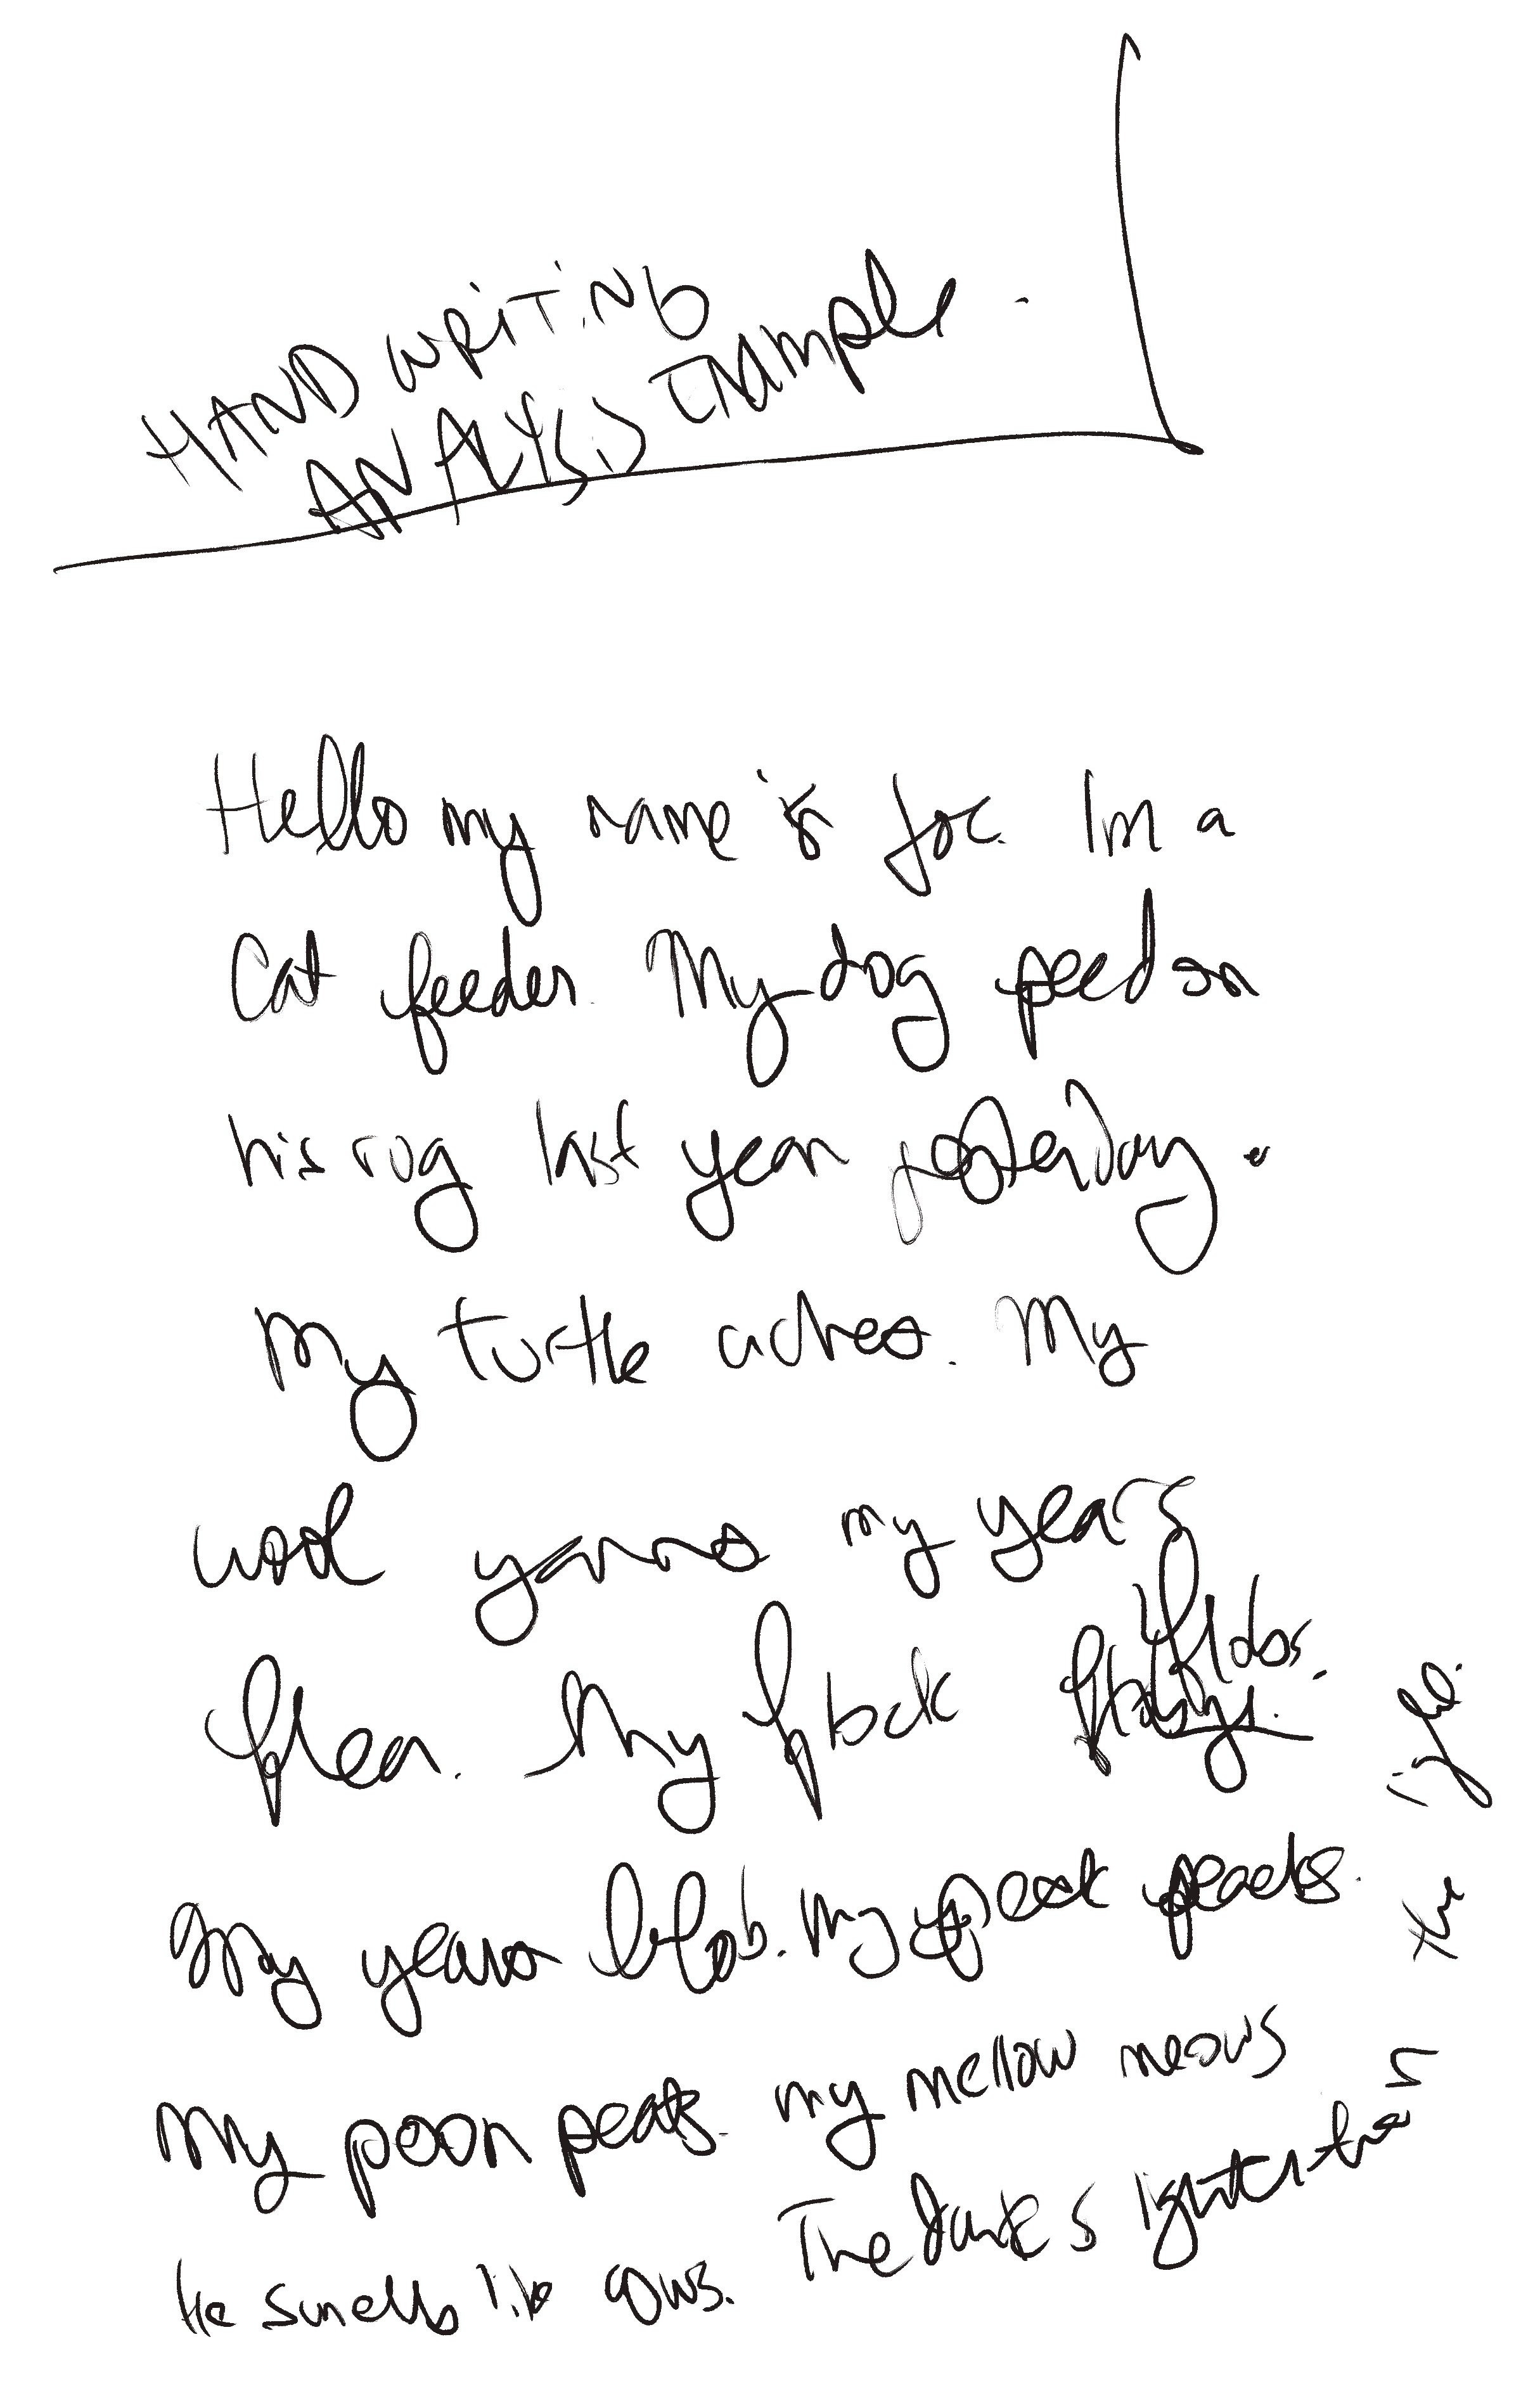 HAND WRITING
ANALYSIS Example.
Hello my name is Joe. Im a
Cat feeder. My dog peed on
his rug last year yesterday.
My turtle aches. My
wool yarns my years
flea. My flock
My years blob. My peaks.
My poon peats. my mellow meows
He smells like cows. The dark s lighter than
the life.